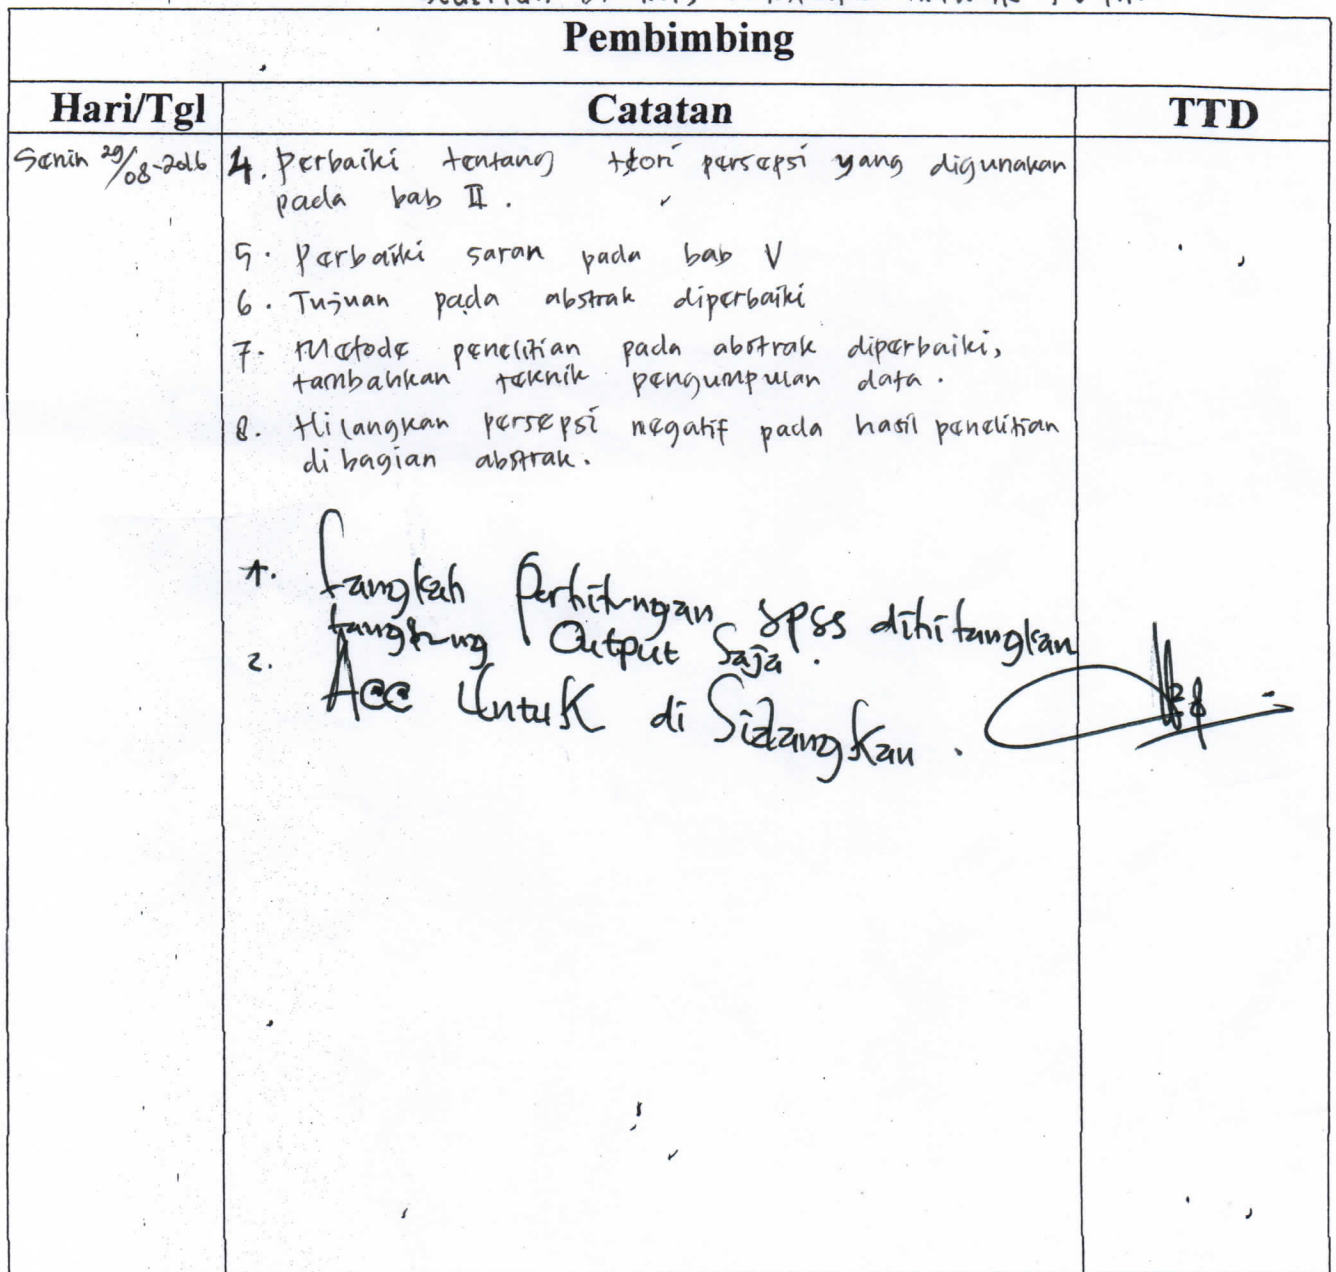 Pembimbing
Hari/Tgl Catatan TTD
Senin 29/08-2016 4. Perbaiki tentang teori persepsi yang digunakan
pada bab II.
5. Perbaiki saran pada bab V
6. Tujuan pada abstrak diperbaiki
7. Metode penelitian pada abstrak diperbaiki,
tambahkan teknik pengumpulan data.
8. Hilangkan persepsi negatif pada hasil penelitian
di bagian abstrak.
1. Langkah Perhitungan SPSS dihilangkan
langsung Output Saja.
2. Acc Untuk di Sidangkan.